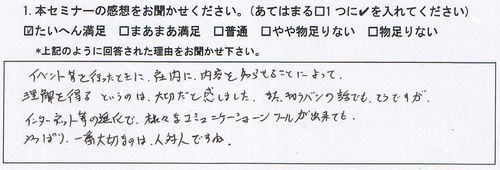 1. 本セミナーの感想をお聞かせください。（あてはまる□1つに✔を入れてください）
☑たいへん満足 □まあまあ満足 □普通 □やや物足りない □物足りない
*上記のように回答された理由をお聞かせ下さい。
イベント等を行ったときに、社内に、内容を知らせることによって、
理解を得る というのは、大切だと感じました。また、
インターネット等の進化で、様々なコミュニケーションツールが出来ても、
やっぱり、一番大切なのは、人対人ですね。